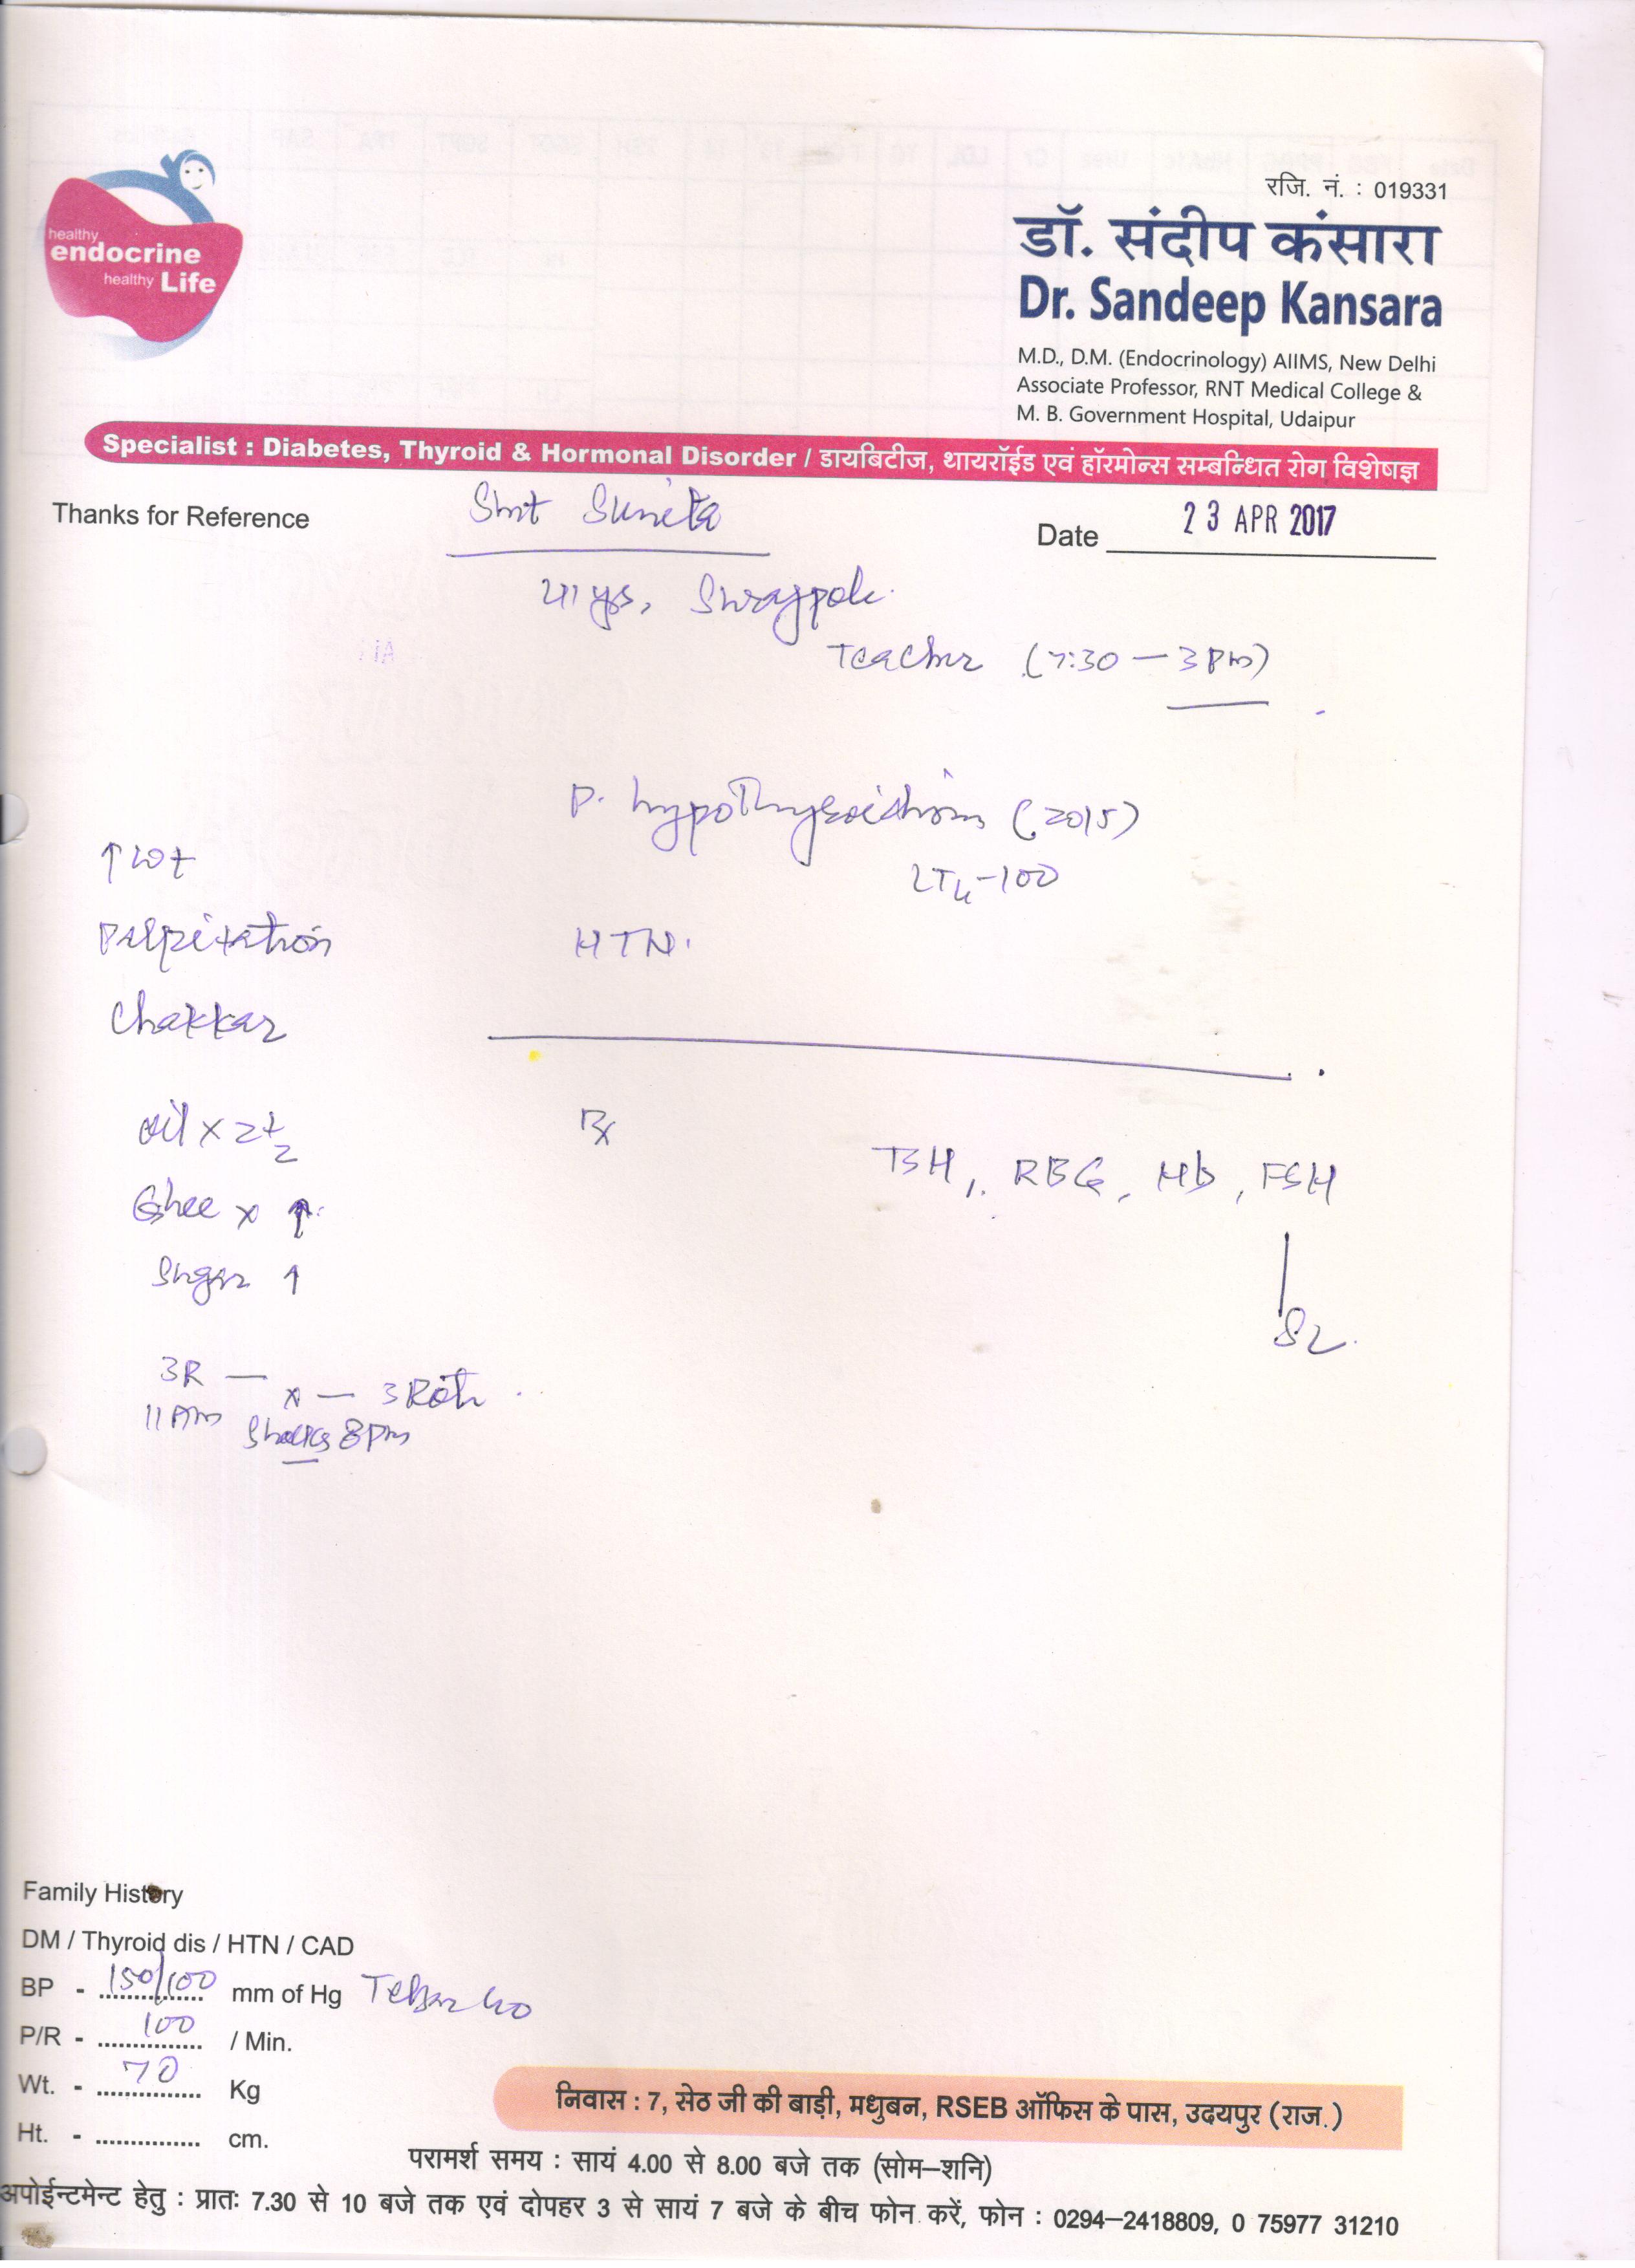 healthy
endocrine
healthy Life
रजि. नं. : 019331
डॉ. संदीप कंसारा
Dr. Sandeep Kansara
M.D., D.M. (Endocrinology) AIIMS, New Delhi
Associate Professor, RNT Medical College &
M. B. Government Hospital, Udaipur
Specialist : Diabetes, Thyroid & Hormonal Disorder / डायबिटीज, थायरॉईड एवं हॉरमोन्स सम्बन्धित रोग विशेषज्ञ
Thanks for Reference
Smt Sunita
Date 23 APR 2017
41 yrs, Surajpole.
Teacher (7:30 — 3 pm)
P. hypothyroidism (2015)
↑ wt
LT4-100
Palpitation
HTN.
Chakkar
Oil x 2 1/2
Rx
TSH, RBG, Hb, FSH
Ghee x ↑
Sugar ↑
3R — x — 3 Roti
11 Am 8 pm
Family History
DM / Thyroid dis / HTN / CAD
BP - 150/100 mm of Hg
P/R - 100 / Min.
Wt. - 70 Kg
Ht. - ............... cm.
निवास : 7, सेठ जी की बाड़ी, मधुबन, RSEB ऑफिस के पास, उदयपुर (राज.)
परामर्श समय : सायं 4.00 से 8.00 बजे तक (सोम–शनि)
अपोईन्टमेन्ट हेतु : प्रातः 7.30 से 10 बजे तक एवं दोपहर 3 से सायं 7 बजे के बीच फोन करें, फोन : 0294–2418809, 0 75977 31210